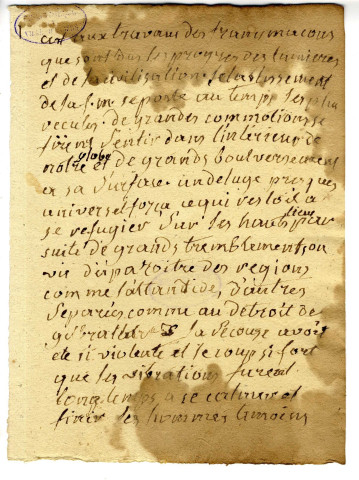 ceist aux travaux des francs macons
que sont dus les progres des lumieres
et de la civilisation. le etablissement
de la f. m se porte au temps les plus
recules. de grandes commotions se
firent sentir dans l'interieur de
notre globe et de grands boulversement
a sa surface. un deluge presques
universel força ce qui restoit a
se refugier sur les hauts lieux par
suite de grands tremblements, on
vit disparoitre des regions
comme l'atlantide, d'autres
separés comme au detroit de
gibraltare la secouse avoit
été si violente et le coup si fort
que les vibrations furent
longtemps a se calmer et
finir les hommes temoins